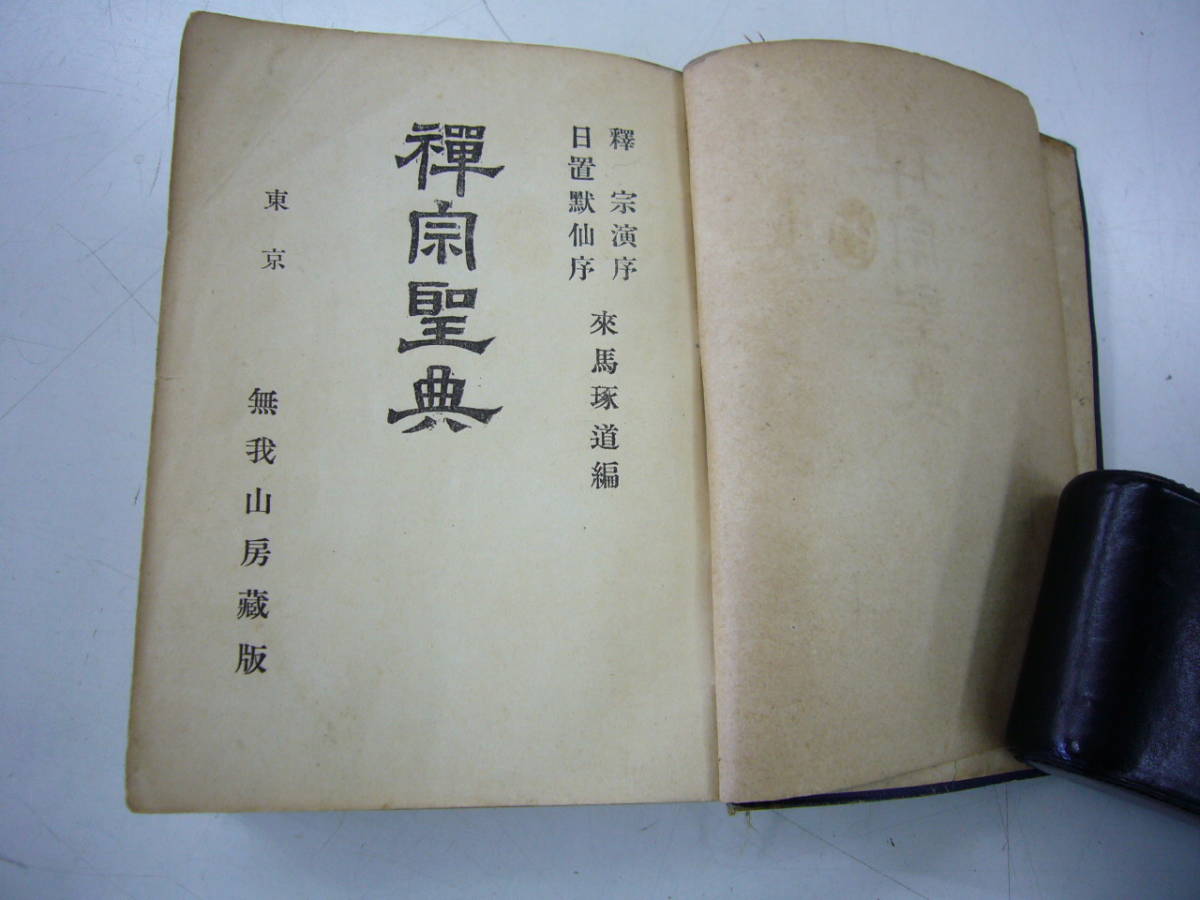 釋宗演序
日置默仙序
來馬琢道編
禪宗聖典
東京
無我山房藏版